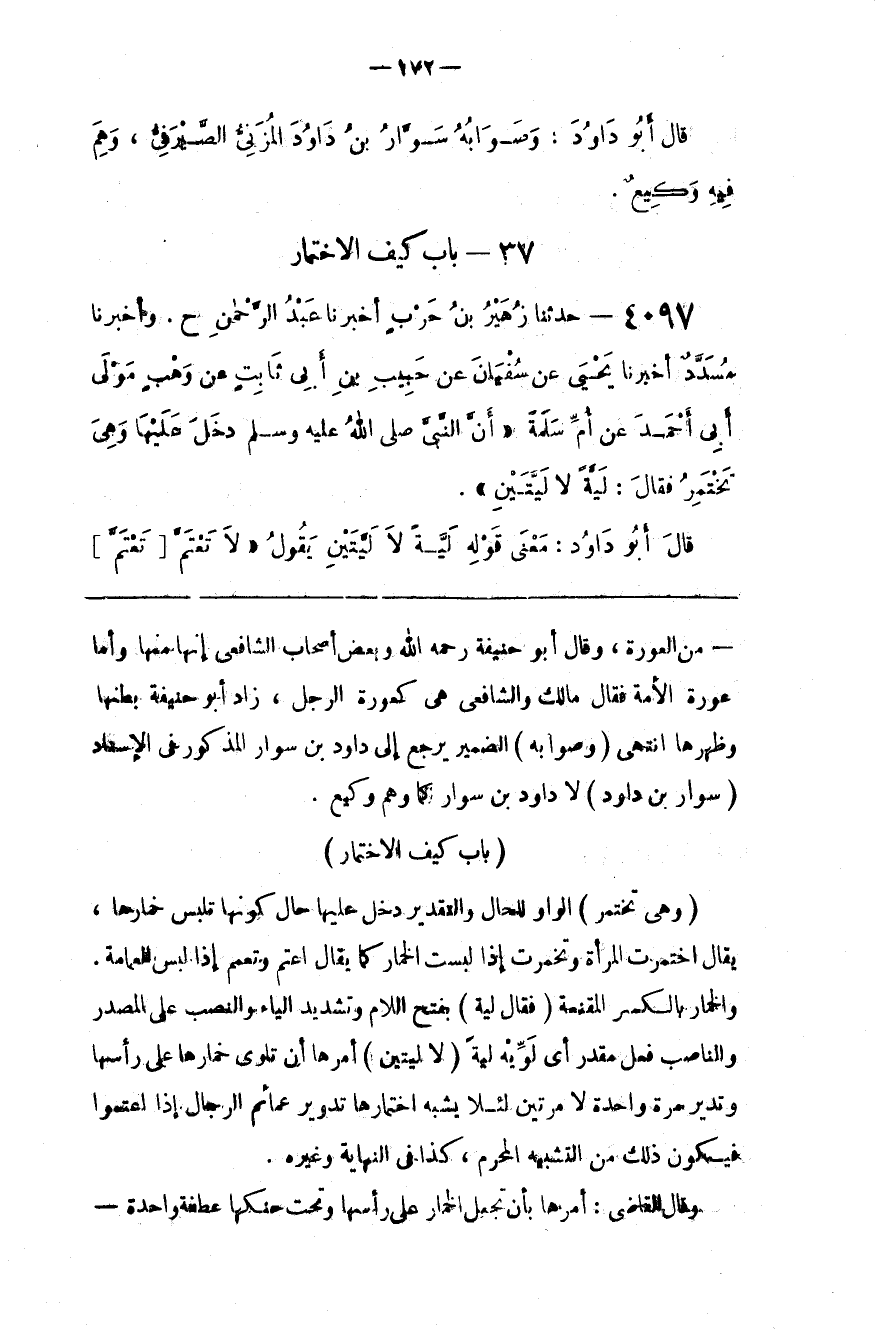 — ١٧٢ —
قال أَبُو دَاوُدَ : وَصَـوَابُهُ سَـوَّارُ بنُ دَاوُدَ المُزَنِيُّ الصَّـيْرَفِيُّ ، وَهِمَ
فِيهِ وَكِيعٌ .
٣٧ — باب كيف الاختمار
٤٠٩٧ — حدثنا زُهَيْرُ بنُ حَرْبٍ أخبرنا عَبْدُ الرَّحْمٰنِ ح . وأخبرنا
مُسَدَّدٌ أخبرنا يَحْـيَى عن سُفْيَانَ عن حَبِيبِ بنِ أَبِى ثَابِتٍ عن وَهْبٍ مَوْلَى
أَبِى أَحْمَـدَ عن أُمِّ سَلَمَةَ « أَنَّ النَّبِىَّ صلى اللهُ عليه وسـلم دخَلَ عَلَيْهَا وَهِىَ
تَخْتَمِرُ فقالَ : لَيَّةً لا لَيَّتَـيْنِ » .
قالَ أَبُو دَاوُد : مَعْنَى قَوْلِهِ لَيَّـةً لاَ لَيَّتَيْنِ يَقُولُ « لاَ تَعْتَمَّ [ تَعْتَمَّ ]
— من العورة ، وقال أبو حنيفة رحمه الله وبعض أصحاب الشافعى إنها منها وأما
عورة الأمة فقال مالك والشافعى هى كعورة الرجل ، زاد أبو حنيفة بطنها
وظهرها انتهى ( وصوابه ) الضمير يرجع إلى داود بن سوار المذكور فى الإسناد
( سوار بن داود ) لا داود بن سوار كما وهم وكيع .
( باب كيف الاختمار )
( وهى تختمر ) الواو للحال والتقدير دخل عليها حال كونها تلبس خمارها ،
يقال اختمرت المرأة وتخمرت إذا لبست الخمار كما يقال اعتم وتعمم إذا لبس العمامة .
والخمار بالـكسر المقنعة ( فقال لية ) بفتح اللام وتشديد الياء والنصب على المصدر
والناصب فعل مقدر أى لَوِّيْه ليةً ( لا ليتين ) أمرها أن تلوى خمارها على رأسها
وتدير مرة واحدة لا مرتين لئـلا يشبه اختمارها تدوير عمائم الرجال إذا اعتموا
فيـكون ذلك من التشبه المحرم ، كذا فى النهاية وغيره .
وقال القاضى : أمرها بأن تجعل الخمار على رأسها وتحت حنـكها عطفة واحدة —